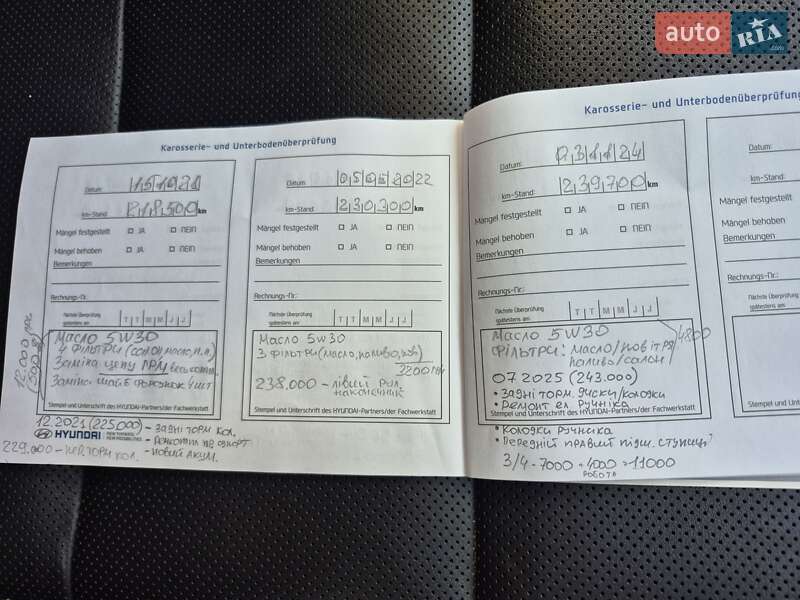 auto RIA
Karosserie- und Unterbodenüberprüfung
Datum:
km-Stand: 218.500 km
Mängel festgestellt JA NEIN
Mängel behoben JA NEIN
Bemerkungen
Rechnungs-Nr.:
Nächste Überprüfung
spätestens am: T T M M J J
Масло 5W30
4 фільтри (салон, масло, п.п)
Заміна цепу ГРМ
Заміна
12.000 грн
Stempel und Unterschrift des HYUNDAI-Partners/der Fachwerkstatt
12.2021 (225.000) - задні торм. кол.
HYUNDAI NEW THINKING. NEW POSSIBILITIES.
- новий акум.
229.000 - пер. торм кол.
Datum: 05052022
km-Stand: 230.300 km
Mängel festgestellt JA NEIN
Mängel behoben JA NEIN
Bemerkungen
Rechnungs-Nr.:
Nächste Überprüfung
spätestens am: T T M M J J
Масло 5W30
3 фільтри (масло, паливо, пов)
3200 грн
238.000 - лівий рул.
наконечник
Stempel und Unterschrift des HYUNDAI-Partners/der Fachwerkstatt
Karosserie- und Unterbodenüberprüfung
Datum: 031124
km-Stand: 239.700 km
Mängel festgestellt JA NEIN
Mängel behoben JA NEIN
Bemerkungen
Rechnungs-Nr.:
Nächste Überprüfung
spätestens am: T T M M J J
Масло 5W30
Фільтри: масло/повітря
паливо/салон
4800
07.2025 (243.000)
• Задні торм. диски/колодки
• Ремонт ел ручніка
Stempel und Unterschrift des HYUNDAI-Partners/der Fachwerkstatt
• Колодки ручніка
• Передній правий підш. ступиці
З/ч - 7000 + 4000 = 11000
робота
Datum:
km-Stand:
Mängel festgestellt
Mängel behoben
Bemerkungen
Rechnungs-Nr.:
Nächste Überprüfung
spätestens am:
Stempel und Unterschrift